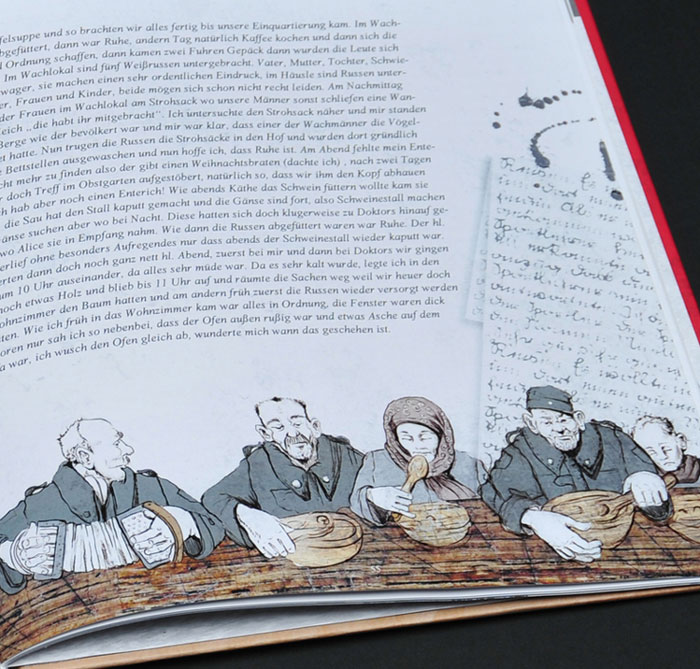 felsuppe und so brachten wir alles fertig bis unsere Einquartierung kam. Im Wach-
bgefüttert, dann war Ruhe, andern Tag natürlich Kaffee kochen und dann sich die
d Ordnung schaffen, dann kamen zwei Fuhren Gepäck dann wurden die Leute sich
. Im Wachlokal sind fünf Weißrussen untergebracht. Vater, Mutter, Tochter, Schwie-
wager, sie machen einen sehr ordentlichen Eindruck, im Häusle sind Russen unter-
er, Frauen und Kinder, beide mögen sich schon nicht recht leiden. Am Nachmittag
der Frauen im Wachlokal am Strohsack wo unsere Männer sonst schliefen eine Wan-
leich „die habt ihr mitgebracht". Ich untersuchte den Strohsack näher und mir standen
Berge wie der bevölkert war und mir war klar, dass einer der Wachmänner die Vögel-
et hatte. Nun trugen die Russen die Strohsäcke in den Hof und wurden dort gründlich
e Bettstellen ausgewaschen und nun hoffe ich, dass Ruhe ist. Am Abend fehlte mein Ente-
cht mehr zu finden also der gibt einen Weihnachtsbraten (dachte ich) , nach zwei Tagen
r doch Treff im Obstgarten aufgestöbert, natürlich so, dass wir ihm den Kopf abhauen
h hab aber noch einen Enterich! Wie abends Käthe das Schwein füttern wollte kam sie
, die Sau hat den Stall kaputt gemacht und die Gänse sind fort, also Schweinestall machen
änse suchen aber wo bei Nacht. Diese hatten sich doch klugerweise zu Doktors hinauf ge-
wo Alice sie in Empfang nahm. Wie dann die Russen abgefüttert waren war Ruhe. Der hl.
verlief ohne besonders Aufregendes nur dass abends der Schweinestall wieder kaputt war.
erten dann doch noch ganz nett hl. Abend, zuerst bei mir und dann bei Doktors wir gingen
um 10 Uhr auseinander, da alles sehr müde war. Da es sehr kalt wurde, legte ich in den
noch etwas Holz und blieb bis 11 Uhr auf und räumte die Sachen weg weil wir heuer doch
ohnzimmer den Baum hatten und am andern früh zuerst die Russen wieder versorgt werden
ten. Wie ich früh in das Wohnzimmer kam war alles in Ordnung, die Fenster waren dick
oren nur sah ich so nebenbei, dass der Ofen außen rußig war und etwas Asche auf dem
a war, ich wusch den Ofen gleich ab, wunderte mich wann das geschehen ist.